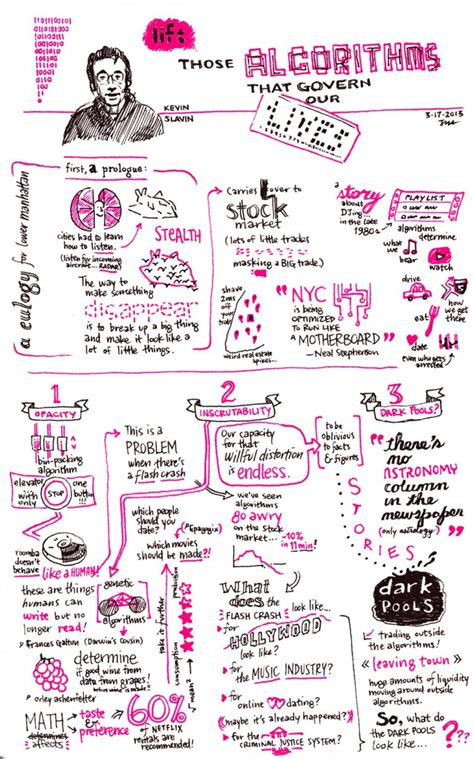 lift
THOSE ALGORITHMS
THAT GOVERN
OUR
LIVES
KEVIN
SLAVIN
3-17-2013
a eulogy for lower manhattan
first, a prologue:
cities had to learn
how to listen.
(listen for incoming
aircraft... RADAR!)
STEALTH
The way to
make something
disappear
is to break up a big thing
and make it look like a
lot of little things.
Carries over to
stock
market
(lots of little trades)
masking a BIG trade.
shave
2ms
off
your
trade
weird real estate
spikes...
"NYC
is being
OPTIMIZED
TO RUN
LIKE A
MOTHERBOARD"
- Neal Stephenson
a story
about
DJing
in the late
1980s
PLAYLIST
algorithms
determine
what we
hear
watch
drive
how
we get
there
eat
date
even who gets
arrested
1
OPACITY
bin-packing
algorithm
elevator
with only
STOP
one
button!!!
roomba
doesn't
behave
like a HUMAN!
these are things
humans can
write but no
longer read!
This is a
PROBLEM
when there's
a flash crash
genetic
algorithms
Francis Galton (Darwin's Cousin)
determine
if good wine from
data from grapes!
orley ashenfelter
MATH
determines
affects
taste
&
preference
60%
of NETFLIX
rentals are
recommended!
2
INSCRUTABILITY
Our capacity
for that
Willful distortion
is endless.
to be
oblivious
to facts
& figures
which people
should you
date?
(Epagogix)
which movies
should be made?!
take it further
production
consumption
we've seen
algorithms
go awry
on the stock
market...
-10%
in 11min!
What
does the
FLASH CRASH look like...
for
HOLLYWOOD
look like?
for
the MUSIC INDUSTRY?
for
online dating?
(maybe it's already happened?)
for the
CRIMINAL JUSTICE SYSTEM?
3
DARK POOLS?
"there's
no
ASTRONOMY
column
in the
newspaper
(only astrology!)"
STORIES
dark
POOLS
trading outside
the algorithms!
"leaving town"
huge amounts of liquidity
moving around outside
algorithms.
So, what do
the DARK POOLS
look like?
???